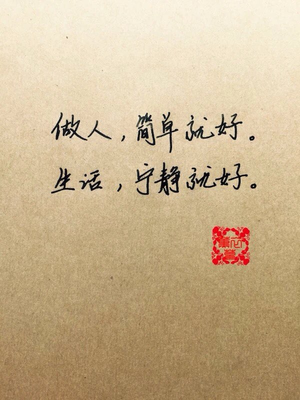 做人，简单就好。
生活，宁静就好。